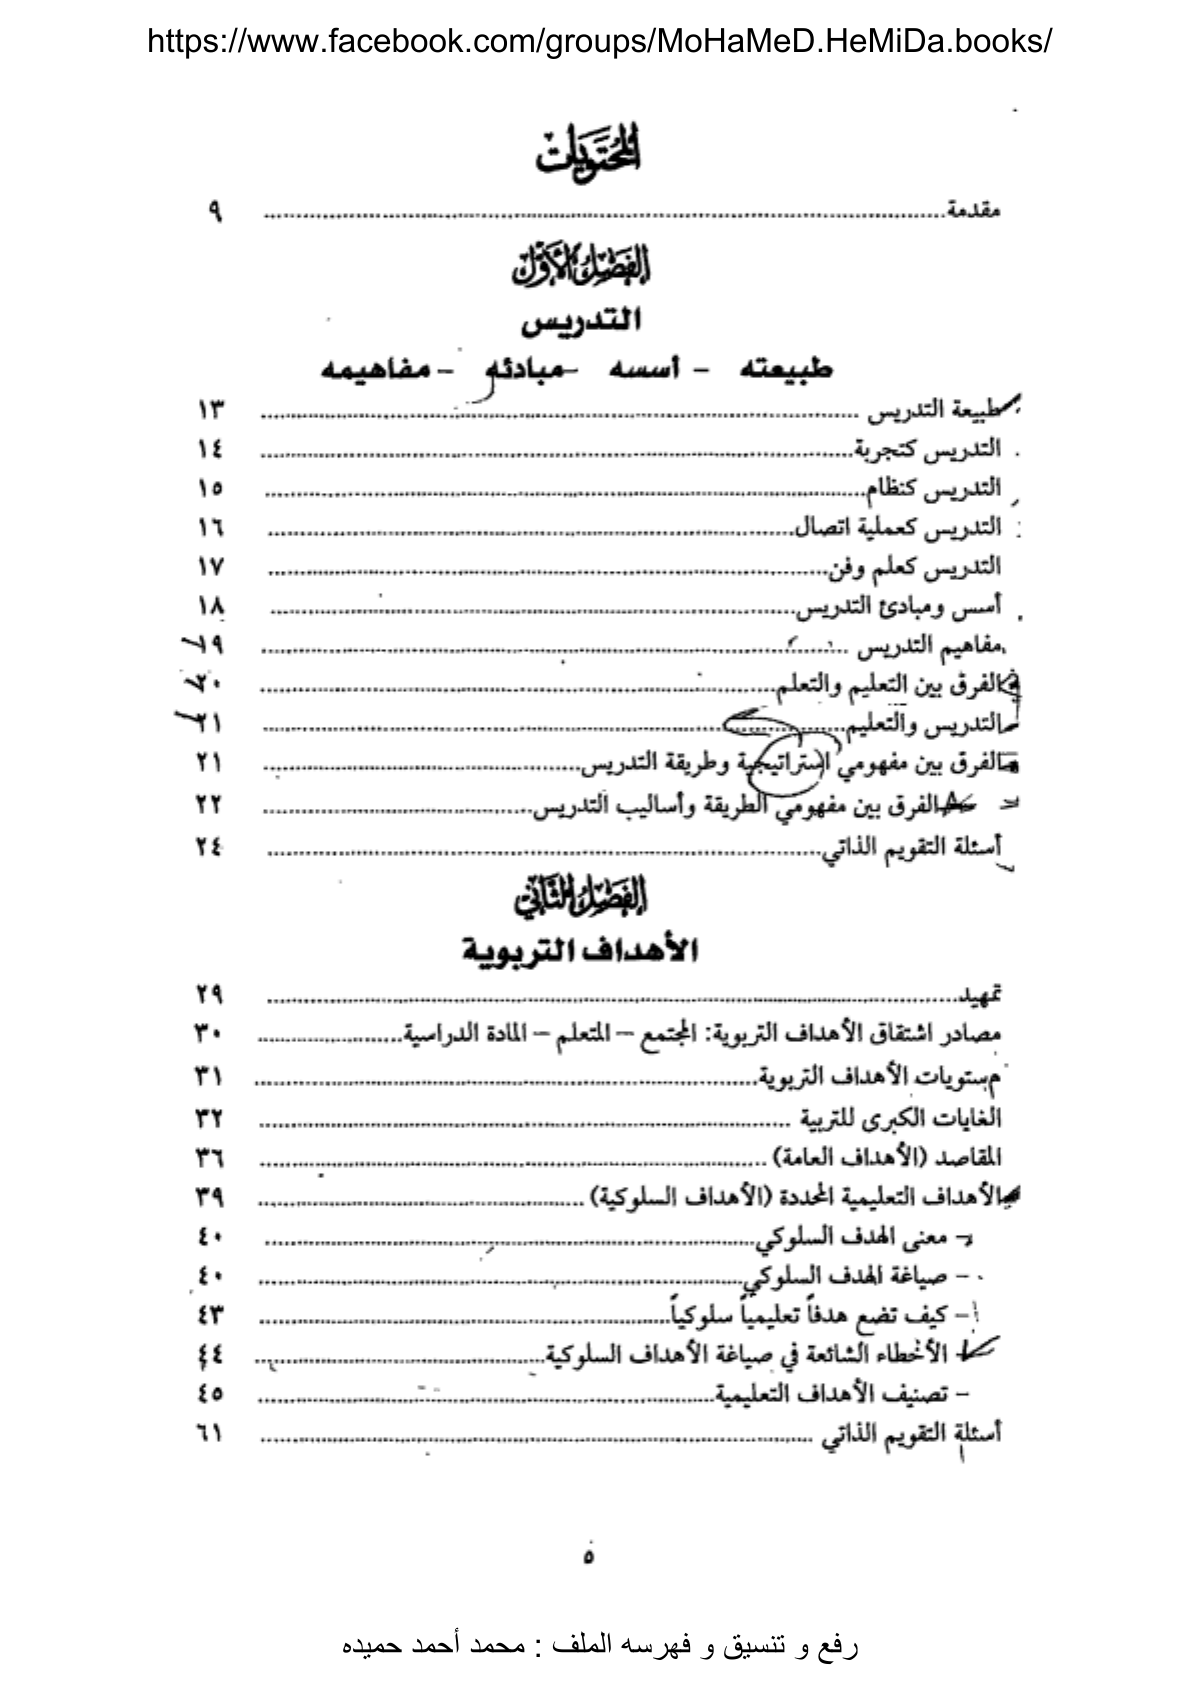 https://www.facebook.com/groups/MoHaMeD.HeMiDa.books/
المحتويات
مقدمة ٩
الفصل الأول
التدريس
طبيعته - أسسه - مبادئه - مفاهيمه
طبيعة التدريس ١٣
التدريس كتجربة ١٤
التدريس كنظام ١٥
التدريس كعملية اتصال ١٦
التدريس كعلم وفن ١٧
أسس ومبادئ التدريس ١٨
مفاهيم التدريس ١٩
الفرق بين التعليم والتعلم ٢٠
التدريس والتعليم ٢١
الفرق بين مفهومي استراتيجية وطريقة التدريس ٢١
الفرق بين مفهومي الطريقة وأساليب التدريس ٢٢
أسئلة التقويم الذاتي ٢٤
الفصل الثاني
الأهداف التربوية
تمهيد ٢٩
مصادر اشتقاق الأهداف التربوية: المجتمع – المتعلم – المادة الدراسية ٣٠
مستويات الأهداف التربوية ٣١
الغايات الكبرى للتربية ٣٢
المقاصد (الأهداف العامة) ٣٦
الأهداف التعليمية المحددة (الأهداف السلوكية) ٣٩
- معنى الهدف السلوكي ٤٠
- صياغة الهدف السلوكي ٤٠
- كيف تضع هدفاً تعليمياً سلوكياً ٤٣
- الأخطاء الشائعة في صياغة الأهداف السلوكية ٤٤
- تصنيف الأهداف التعليمية ٤٥
أسئلة التقويم الذاتي ٦١
٥
رفع و تنسيق و فهرسه الملف : محمد أحمد حميده